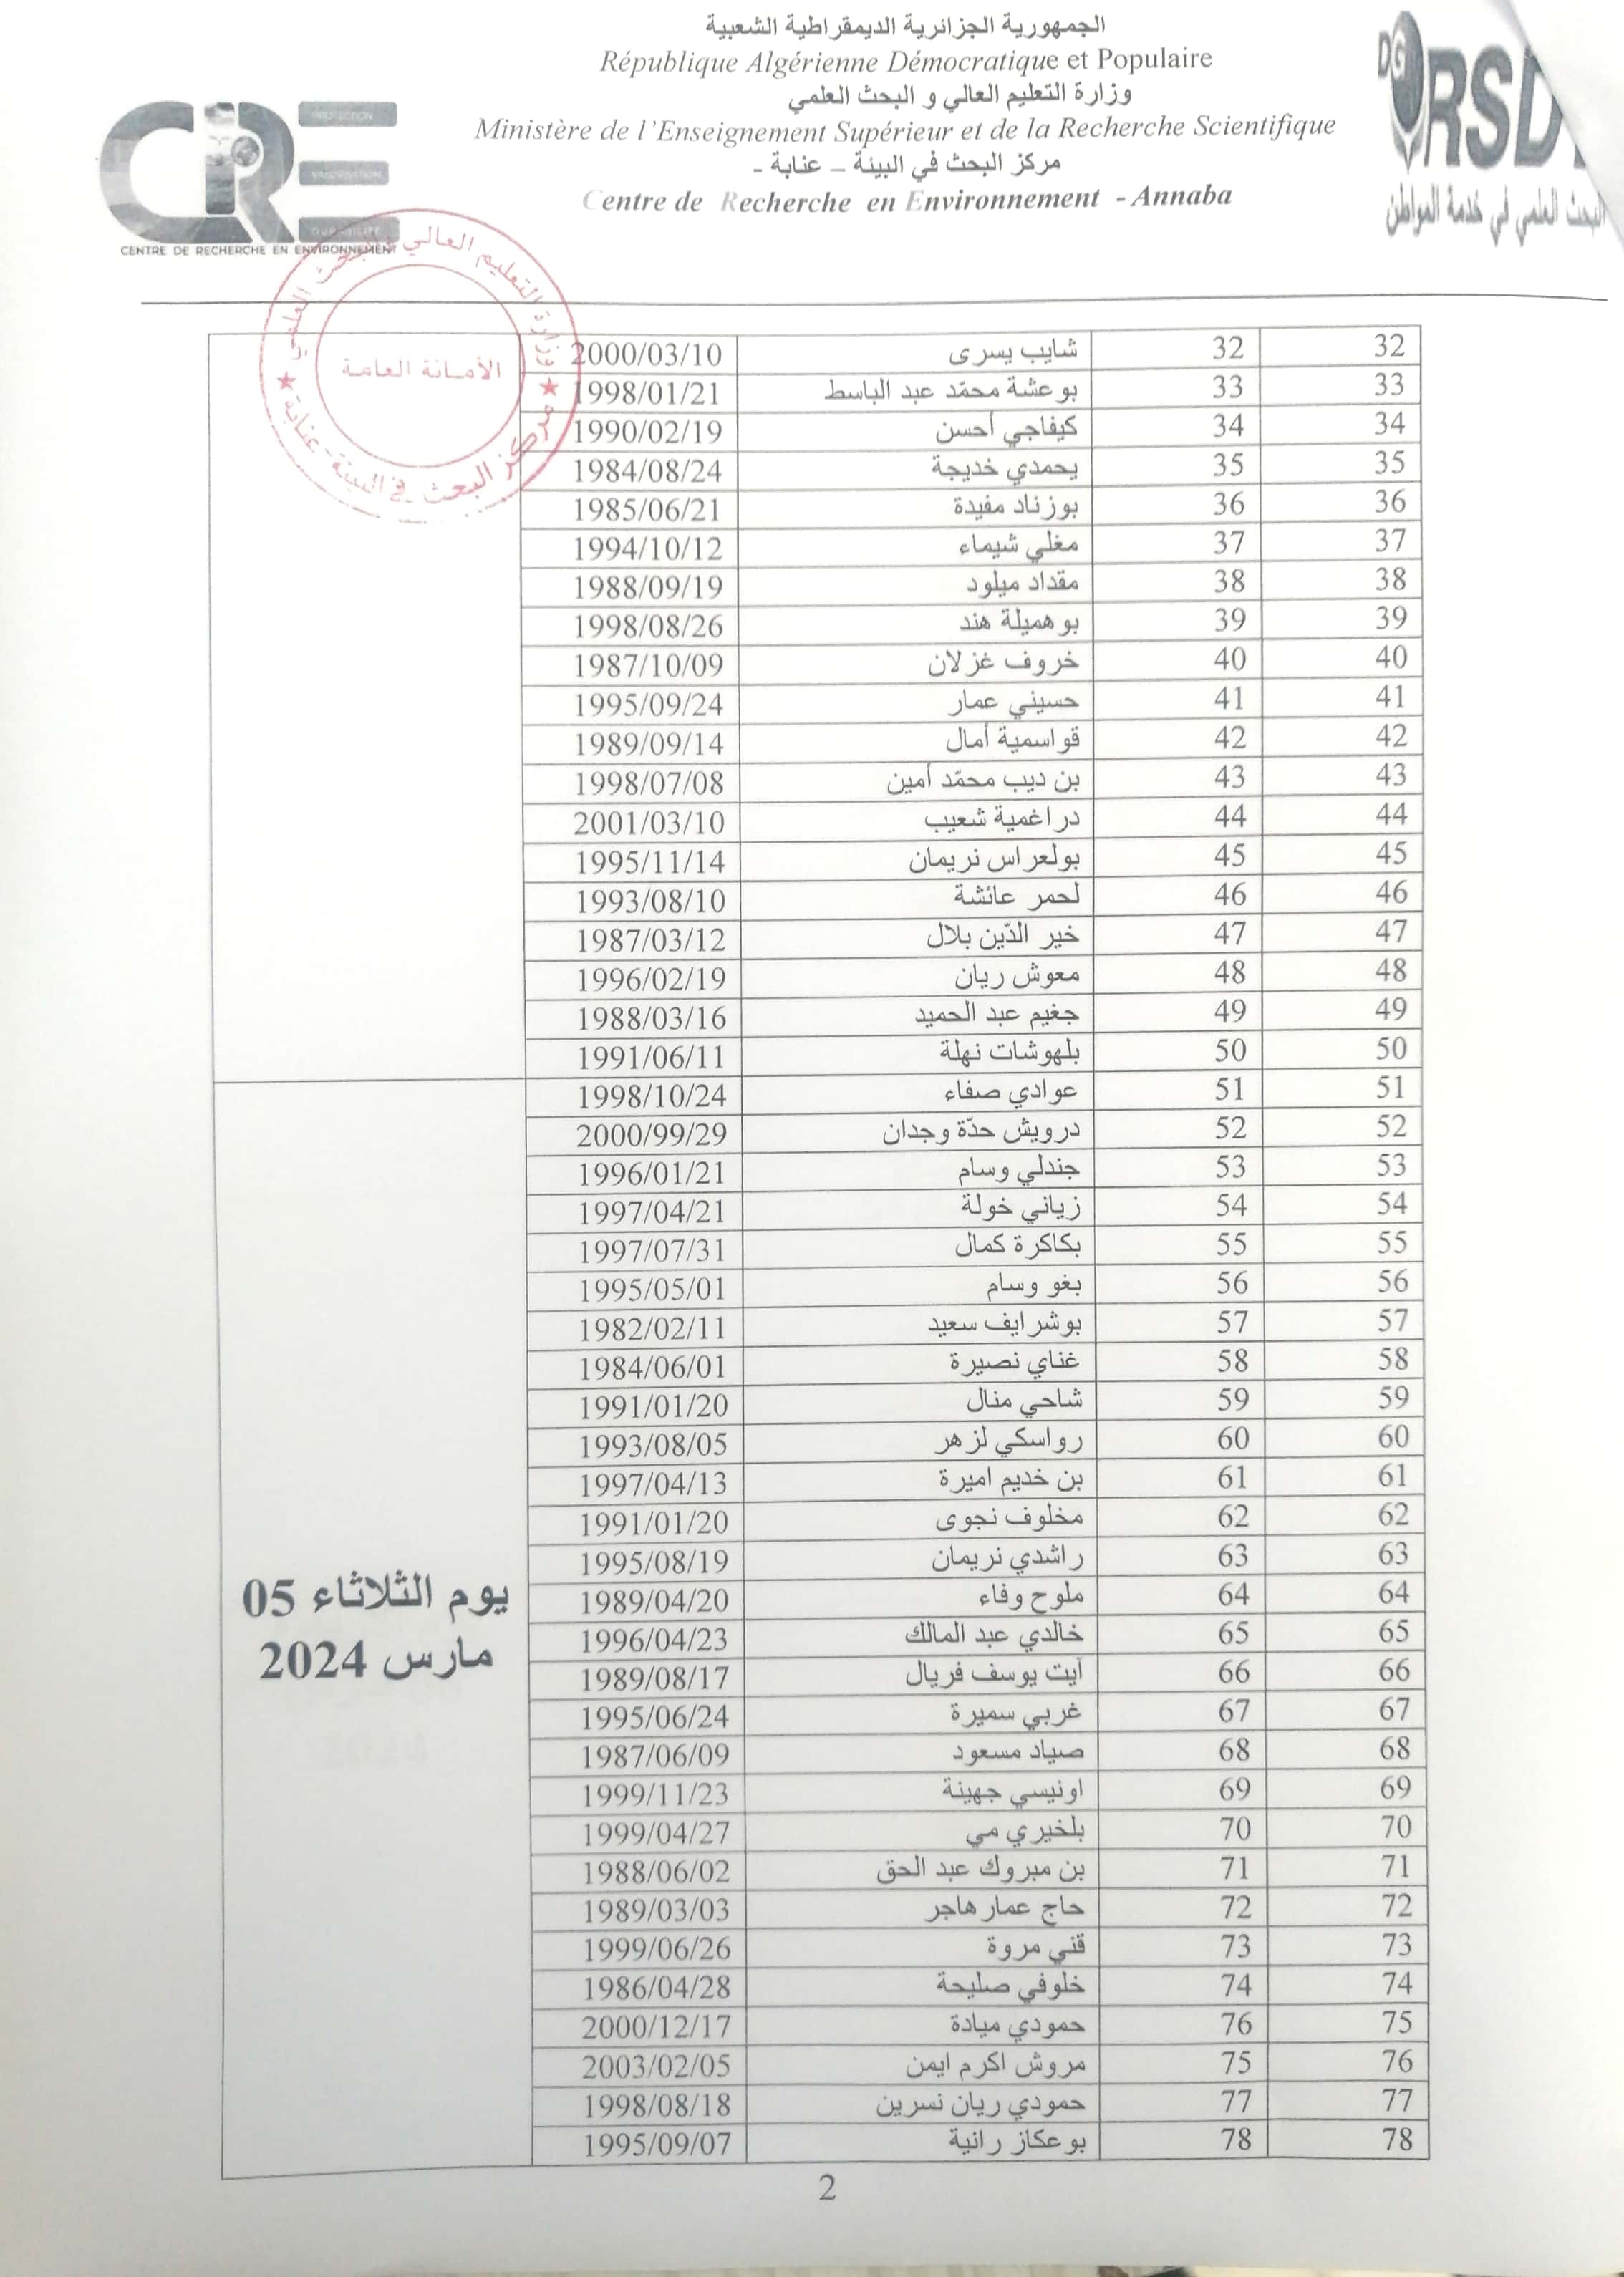 الجمهورية الجزائرية الديمقراطية الشعبية
République Algérienne Démocratique et Populaire
وزارة التعليم العالي و البحث العلمي
Ministère de l'Enseignement Supérieur et de la Recherche Scientifique
مركز البحث في البيئة – عنابة -
Centre de Recherche en Environnement - Annaba
CRE
PROTECTION
VALORISATION
DURABILITE
CENTRE DE RECHERCHE EN ENVIRONNEMENT
DG RSD
البحث العلمي في خدمة المواطن
وزارة التعليم العالي والبحث العلمي
الأمانة العامة
مركز البحث في البيئة - عنابة
32 32 شايب يسرى 2000/03/10
33 33 بوعشة محمّد عبد الباسط 1998/01/21
34 34 كيفاجي أحسن 1990/02/19
35 35 يحمدي خديجة 1984/08/24
36 36 بوزناد مفيدة 1985/06/21
37 37 مغلي شيماء 1994/10/12
38 38 مقداد ميلود 1988/09/19
39 39 بوهميلة هند 1998/08/26
40 40 خروف غزلان 1987/10/09
41 41 حسيني عمار 1995/09/24
42 42 قواسمية أمال 1989/09/14
43 43 بن ديب محمّد أمين 1998/07/08
44 44 دراغمية شعيب 2001/03/10
45 45 بولعراس نريمان 1995/11/14
46 46 لحمر عائشة 1993/08/10
47 47 خير الدّين بلال 1987/03/12
48 48 معوش ريان 1996/02/19
49 49 جغيم عبد الحميد 1988/03/16
50 50 بلهوشات نهلة 1991/06/11
51 51 عوادي صفاء 1998/10/24
52 52 درويش حدّة وجدان 2000/99/29
53 53 جندلي وسام 1996/01/21
54 54 زياني خولة 1997/04/21
55 55 بكاكرة كمال 1997/07/31
56 56 بغو وسام 1995/05/01
57 57 بوشرايف سعيد 1982/02/11
58 58 غناي نصيرة 1984/06/01
59 59 شاحي منال 1991/01/20
60 60 رواسكي لزهر 1993/08/05
61 61 بن خديم اميرة 1997/04/13
62 62 مخلوف نجوى 1991/01/20
63 63 راشدي نريمان 1995/08/19
64 64 ملوح وفاء 1989/04/20
65 65 خالدي عبد المالك 1996/04/23
66 66 آيت يوسف فريال 1989/08/17
67 67 غربي سميرة 1995/06/24
68 68 صياد مسعود 1987/06/09
69 69 اونيسي جهينة 1999/11/23
70 70 بلخيري مي 1999/04/27
71 71 بن مبروك عبد الحق 1988/06/02
72 72 حاج عمار هاجر 1989/03/03
73 73 قني مروة 1999/06/26
74 74 خلوفي صليحة 1986/04/28
75 76 حمودي ميادة 2000/12/17
76 75 مروش اكرم ايمن 2003/02/05
77 77 حمودي ريان نسرين 1998/08/18
78 78 بوعكاز رانية 1995/09/07
يوم الثلاثاء 05
مارس 2024
2